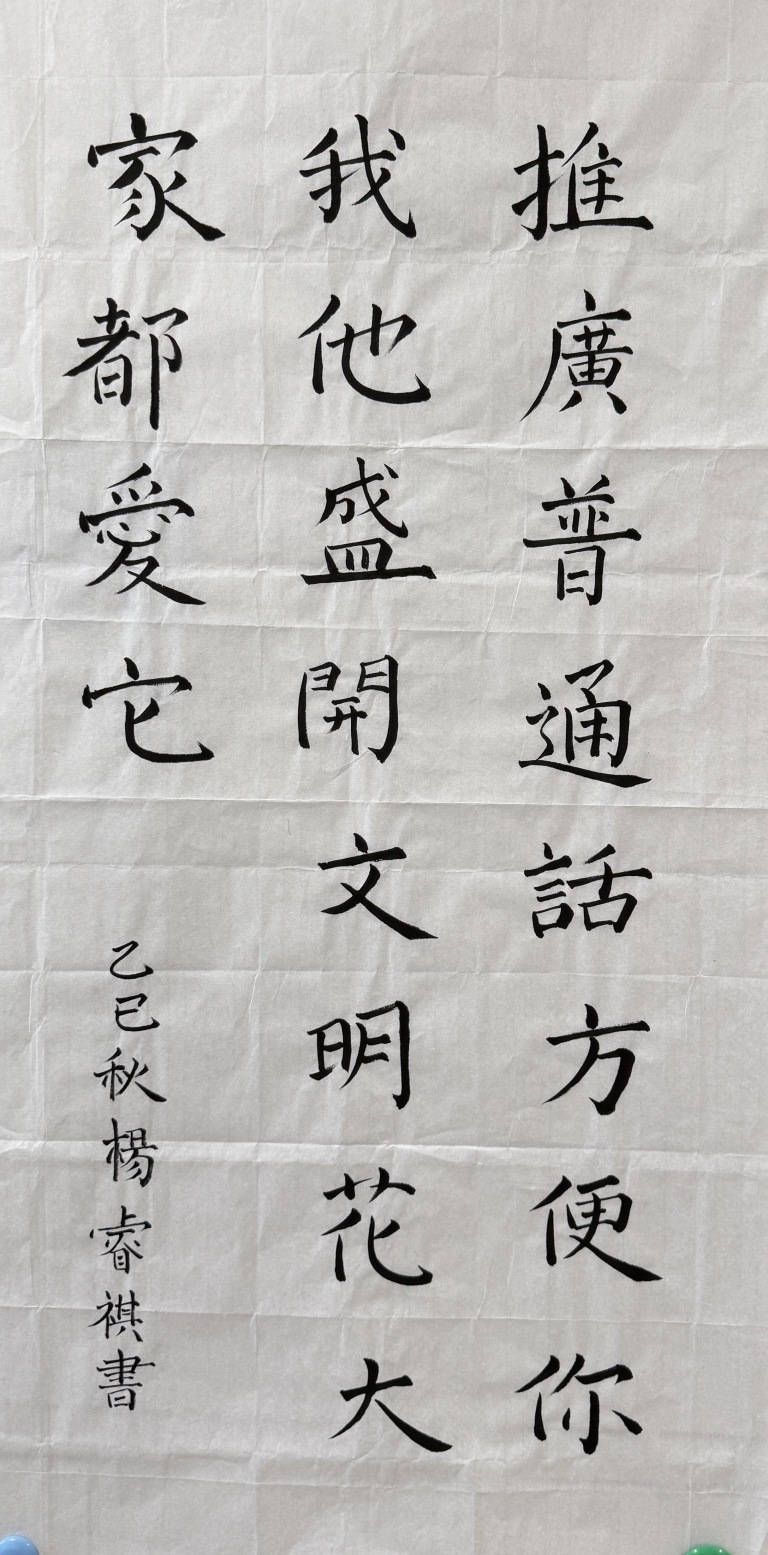 推廣普通話方便你
我他盛開文明花大
家都愛它
乙巳秋楊睿祺書